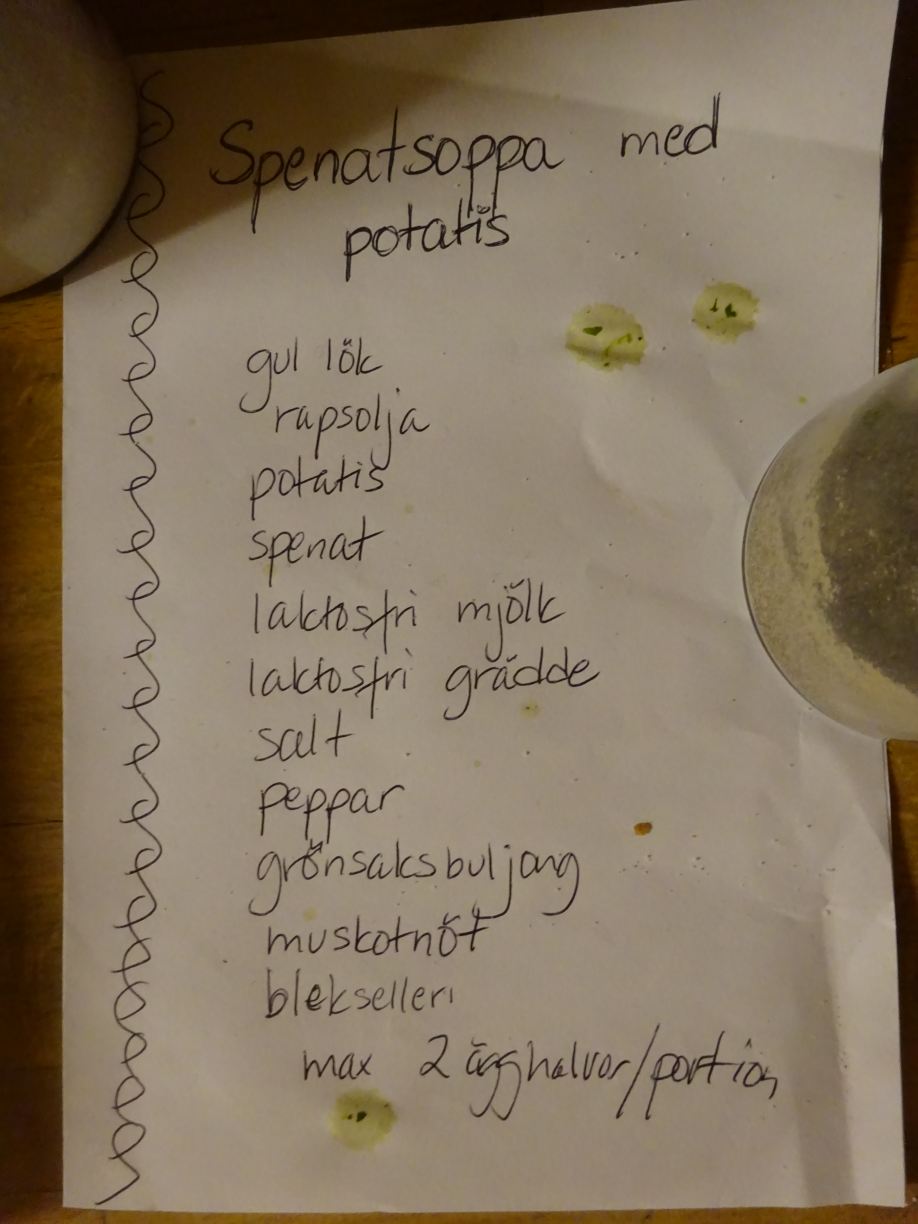 Spenatsoppa med
potatis
gul lök
rapsolja
potatis
spenat
laktosfri mjölk
laktosfri grädde
salt
peppar
grönsaksbuljong
muskotnöt
blekselleri
max 2 ägghalvor/portion